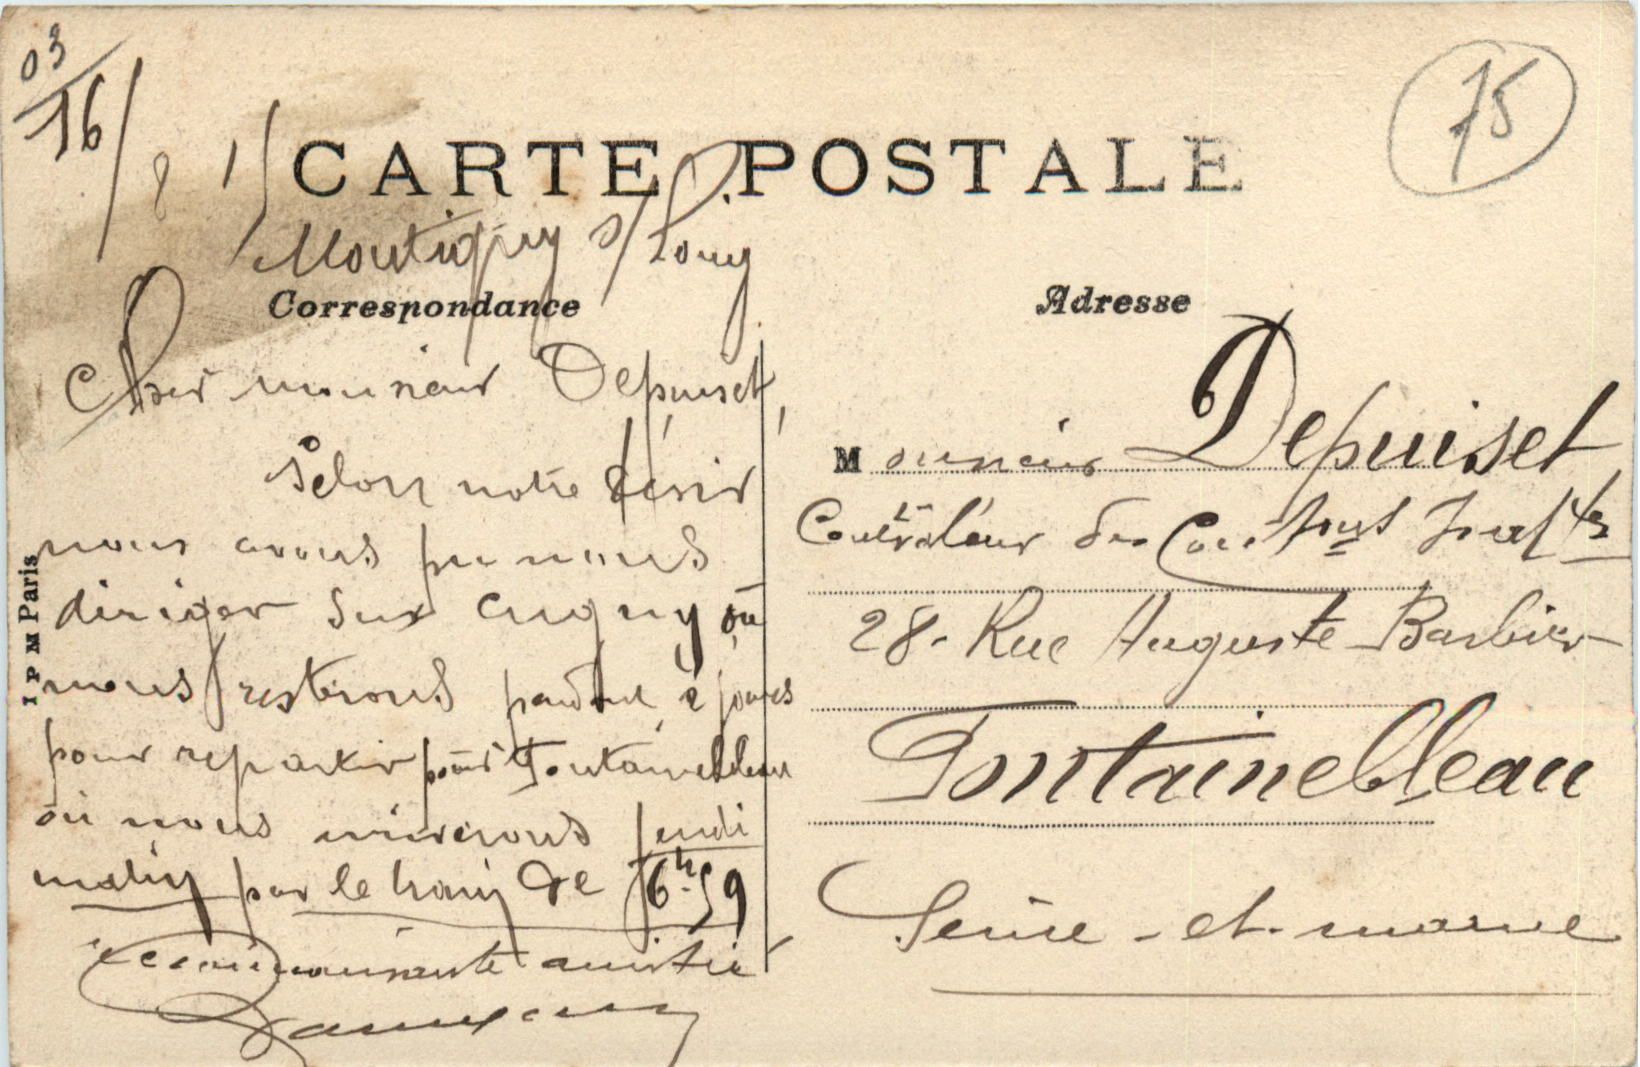 03
16/
75
CARTE POSTALE
Montigny s/ Loing
Correspondance
Cher monsieur Depuiset,
Selon notre désir
nous avons pu nous
diriger sur Cugny où
nous resterons pendant 2 jours
pour repartir pour Fontainebleau
où nous arriverons jeudi
matin par le train de 6h.59
reconnaissante amitié
I P M Paris
Adresse
Monsieur Depuiset
Contrôleur des
28. Rue Auguste Barbier
Fontainebleau
Seine-et-marne